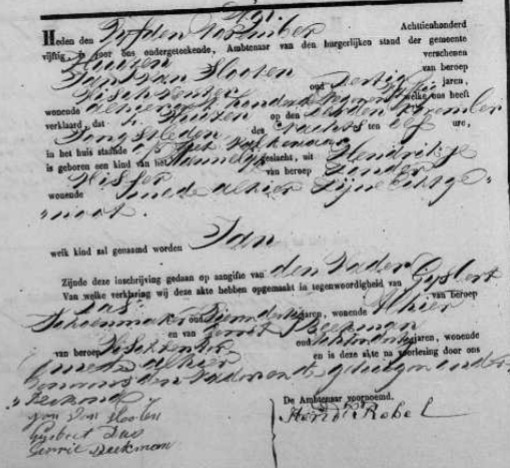 Heden den Vyfden November Achttienhonderd
vijftig, is voor ons ondergeteekende, Ambtenaar van den burgerlijken stand der gemeente
Huizen verschenen
Jan van Slooten van beroep
Vischventer oud Dertig jaren,
wonende alhier welke ons heeft
verklaard, dat te Huizen op den Vierden November
Jongstleden des Nachts ten Elf ure,
in het huis staande
is geboren een kind van het Mannelyk geslacht, uit Hendrikje
Visser van beroep Zonder
wonende mede alhier Zyne Echtge-
noot.
welk kind zal genaamd worden Jan
Zijnde deze inschrijving gedaan op aangifte van den Vader
Van welke verklaring wij deze akte hebben opgemaakt in tegenwoordigheid van Gysbert
Jas van beroep
Schoenmaker oud jaren, wonende Alhier
en van Gerrit Beekman
van beroep Vischventer oud jaren, wonende
mede alhier en is deze akte na voorlezing door ons
den Vader en de getuigen onder-
teekend
De Ambtenaar voornoemd.
Jan van Slooten
Gysbert Jas
Gerrit Beekman
Hendk Robel